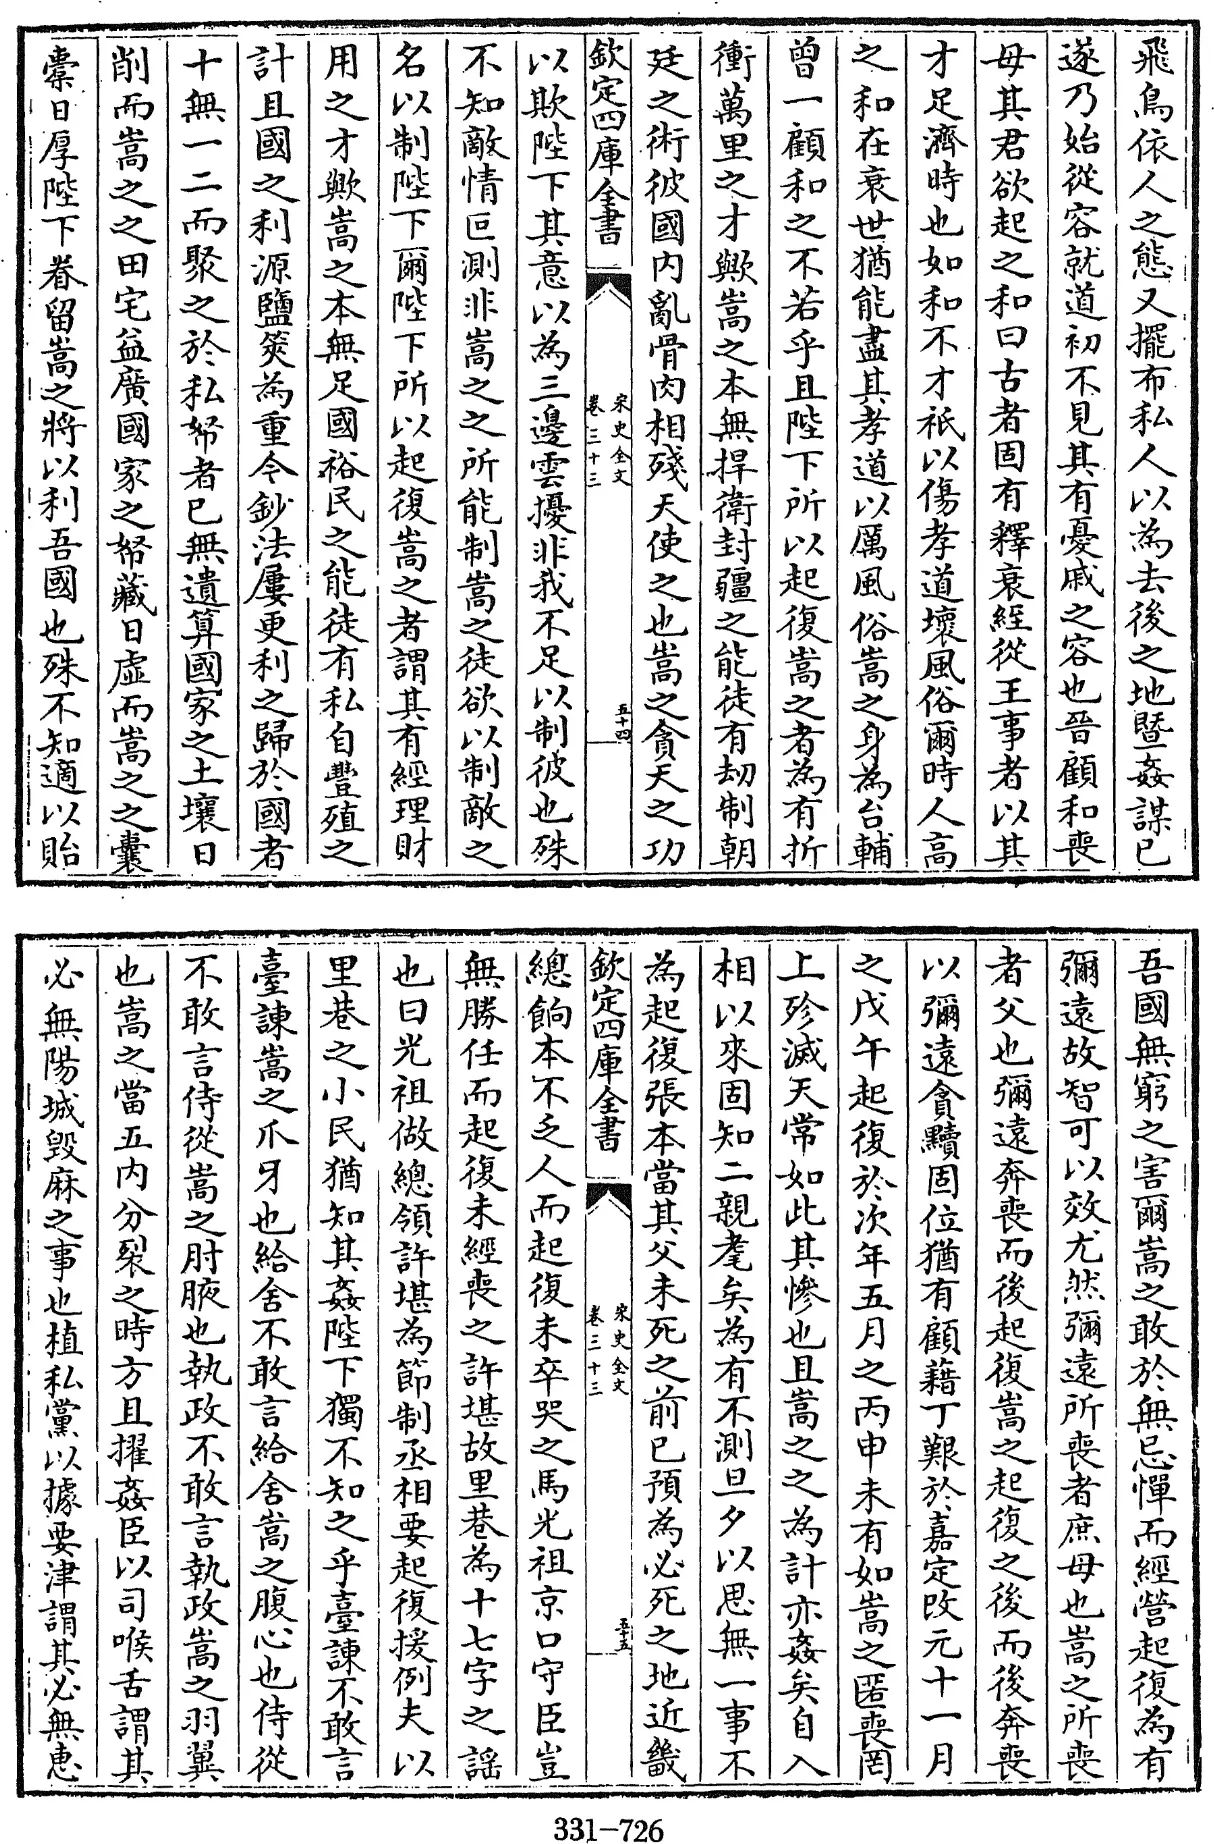 飛鳥依人之態又擺布私人以為去後之地暨姦謀已
遂乃始從容就道初不見其有憂戚之容也晉顧和喪
母其君欲起之和曰古者固有釋衰絰從王事者以其
才足濟時也如和不才祇以傷孝道壞風俗爾時人高
之和在衰世猶能盡其孝道以厲風俗嵩之身為台輔
曾一顧和之不若乎且陛下所以起復嵩之者為有折
衝萬里之才歟嵩之本無捍衛封疆之能徒有劫制朝
廷之術彼國内亂骨肉相殘天使之也嵩之貪天之功
欽定四庫全書
宋史全文
卷三十三
五十四
以欺陛下其意以為三邊雲擾非我不足以制彼也殊
不知敵情叵測非嵩之之所能制嵩之徒欲以制敵之
名以制陛下爾陛下所以起復嵩之者謂其有經理財
用之才歟嵩之本無足國裕民之能徒有私自豐殖之
計且國之利源鹽筴為重今鈔法屢更利之歸於國者
十無一二而聚之於私帑者已無遺算國家之土壤日
削而嵩之之田宅益廣國家之帑藏日虛而嵩之之囊
橐日厚陛下眷留嵩之將以利吾國也殊不知適以貽
吾國無窮之害爾嵩之敢於無忌憚而經營起復為有
彌遠故智可以效尤然彌遠所喪者庶母也嵩之所喪
者父也彌遠奔喪而後起復嵩之起復之後而後奔喪
以彌遠貪黷固位猶有顧藉丁艱於嘉定改元十一月
之戊午起復於次年五月之丙申未有如嵩之匿喪罔
上殄滅天常如此其慘也且嵩之之為計亦姦矣自入
相以來固知二親耄矣為有不測旦夕以思無一事不
為起復張本當其父未死之前已預為必死之地近畿
欽定四庫全書
宋史全文
卷三十三
五十五
總餉本不乏人而起復未卒哭之馬光祖京口守臣豈
無勝任而起復未經喪之許堪故里巷為十七字之謡
也曰光祖做總領許堪為節制丞相要起復援例夫以
里巷之小民猶知其姦陛下獨不知之乎臺諫不敢言
臺諫嵩之爪牙也給舍不敢言給舍嵩之腹心也侍從
不敢言侍從嵩之肘腋也執政不敢言執政嵩之羽翼
也嵩之當五内分裂之時方且擢姦臣以司喉舌謂其
必無陽城毀麻之事也植私黨以據要津謂其必無惠
331-726